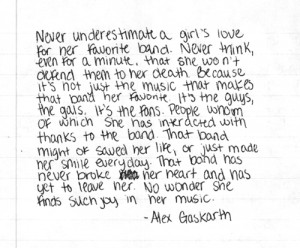 Never underestimate a girl's love
for her favorite band. Never think,
even for a minute, that she won't
defend them to her death. Because
it's not just the music that makes
that band her favorite. It's the guys,
the gals. It's the fans. People whom
of which she has interacted with
thanks to the band. That band
might of saved her life, or just made
her smile everyday. That band has
never broke her heart and has
yet to leave her. No wonder she
finds such joy in her music.
-Alex Gaskarth